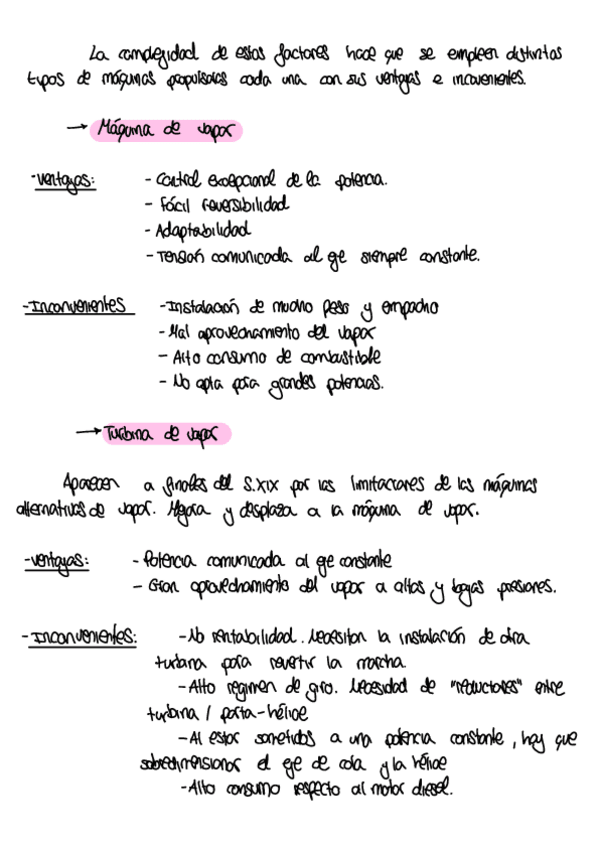 La complejidad de estos factores hace que se empleen distintas
tipos de máquinas propulsoras cada una con sus ventajas e inconvenientes.
→ Máquina de vapor
-Ventajas: - Control excepcional de la potencia.
- Fácil reversibilidad
- Adaptabilidad
- Tensón comunicada al eje siempre constante.
-Inconvenientes -Instalación de mucho peso y empacho
- Mal aprovechamiento del vapor
- Alto consumo de combustible
- No apta para grandes potencias.
→ Turbina de vapor
Aparecen a finales del S.XIX por las limitaciones de las máquinas
alternativas de vapor. Mejora y desplaza a la máquina de vapor.
-ventajas: - Potencia comunicada al eje constante
- Gran aprovechamiento del vapor a altas y bajas presiones.
-Inconvenientes: -No rentabilidad. Necesitan la instalación de otra
turbina para revertir la marcha
-Alto régimen de giro. Necesidad de "reductores" entre
turbina / porta-hélice
-Al estar sometidos a una potencia constante, hay que
sobredimensionar el eje de cola y la hélice
-Alto consumo respecto al motor diesel.